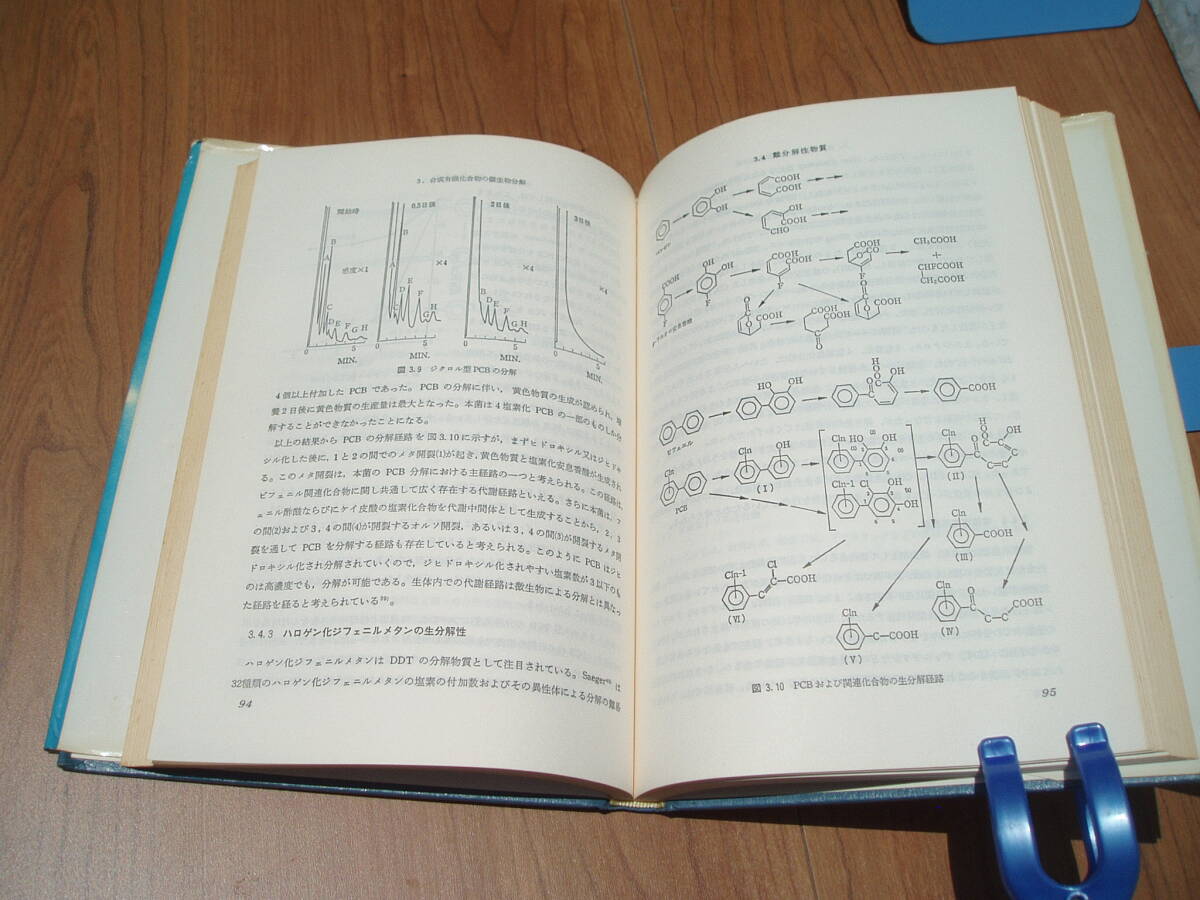 3. 合成有機化合物の微生物分解
開始時
0.5日後
2日後
3日後
B
A
感度×1
C
DE F G H
0 5
MIN.
B
A
×4
E
D
C F
G H
0 5
MIN.
×4
B
D E
F
G H
0 5
MIN.
×4
0 5
MIN.
図 3.9 ジクロル型PCBの分解
4個以上付加した PCB であった。PCB の分解に伴い, 黄色物質の生成が認められ, 培
養2日後に黄色物質の生産量は最大となった。本菌は4塩素化 PCB の一部のものしか分
解することができなかったことになる。
以上の結果から PCB の分解経路を図3.10に示すが, まずヒドロキシル又はジヒドロキ
シル化した後に, 1と2の間でのメタ開裂(1)が起き, 黄色物質と塩素化安息香酸が生成され
る。このメタ開裂は, 本菌の PCB 分解における主経路の一つと考えられる。この経路は,
ビフェニル関連化合物に関し共通して広く存在する代謝経路といえる。さらに本菌は, フ
ェニル酢酸ならびにケイ皮酸の塩素化合物を代謝中間体として生成することから, 2, 3
の間(2)および3, 4の間(4)が開裂するオルソ開裂, あるいは3, 4の間(3)が開裂するメタ開
裂を通して PCB を分解する経路も存在していると考えられる。このように PCB はジヒ
ドロキシル化され分解されていくので, ジヒドロキシル化されやすい塩素数が3以下のも
のは高濃度でも, 分解が可能である。生体内での代謝経路は微生物による分解とは異なっ
た経路を経ると考えられている³⁹⁾。
3.4.3 ハロゲン化ジフェニルメタンの生分解性
ハロゲン化ジフェニルメタンは DDT の分解物質として注目されている。Saeger⁴⁰⁾ は
32種類のハロゲン化ジフェニルメタンの塩素の付加数およびその異性体による分解の難易
94
3.4 難分解性物質
OH
OH
COOH
COOH
OH
COOH
CHO
ベンゼン
COOH
F
OH
OH
F
COOH
COOH
F
COOH
F
CH₃COOH
+
CHFCOOH
CH₂COOH
COOH
COOH
COOH
O
COOH
HO
OH
OH
COOH
ビフェニル
Cln
PCB
Cln
OH
(I)
Cln
HO
OH
Cln-1
Cl
OH
OH
Cln
OH
(II)
Cln
COOH
(III)
Cln-1
Cl
COOH
(VI)
Cln
COOH
(V)
Cln
COOH
(IV)
図 3.10 PCBおよび関連化合物の生分解経路
95